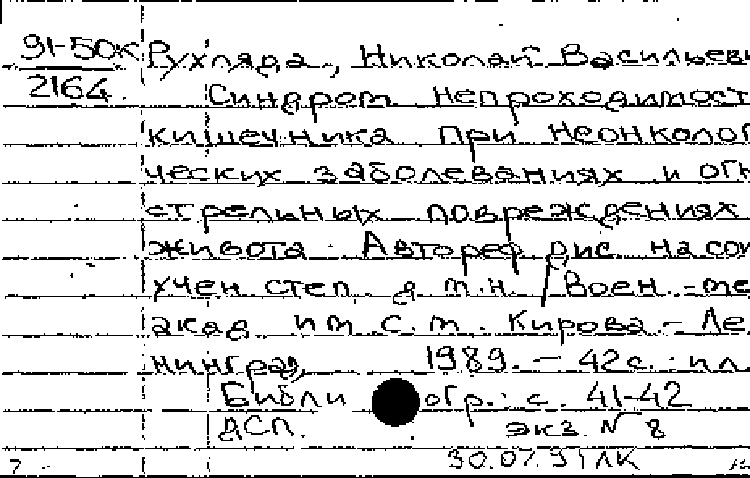 91-50к
2164
Рухляда, Николай Васильев
Синдром непроходимост
кишечника при неонколог
ческих заболеваниях и огн
стрельных повреждениях
живота. Автореф дис на сои
учен степ. д м.н. / Воен.-ме
акад им С.М. Кирова - Ле
нинград, 1989. - 42с. : ил.
Библиогр.: с. 41-42
ДСП. экз N 8
30.07.91 ЛК